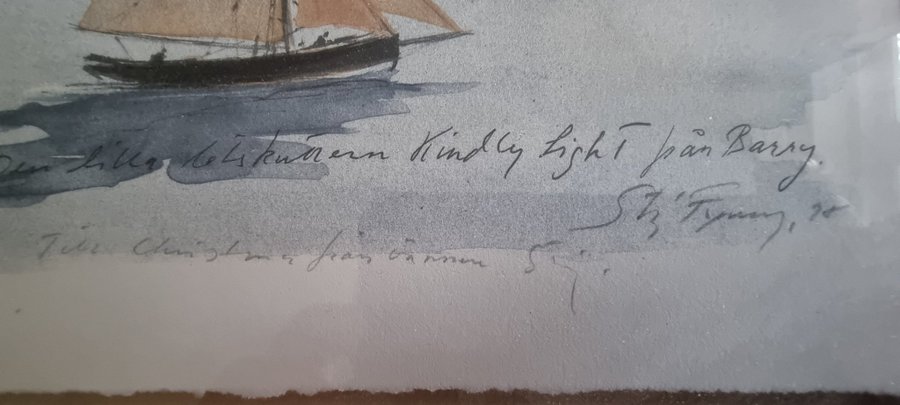 Den lilla lotskuttern Kindly Light från Barry
Stig
Till Christina från vännen Stig.